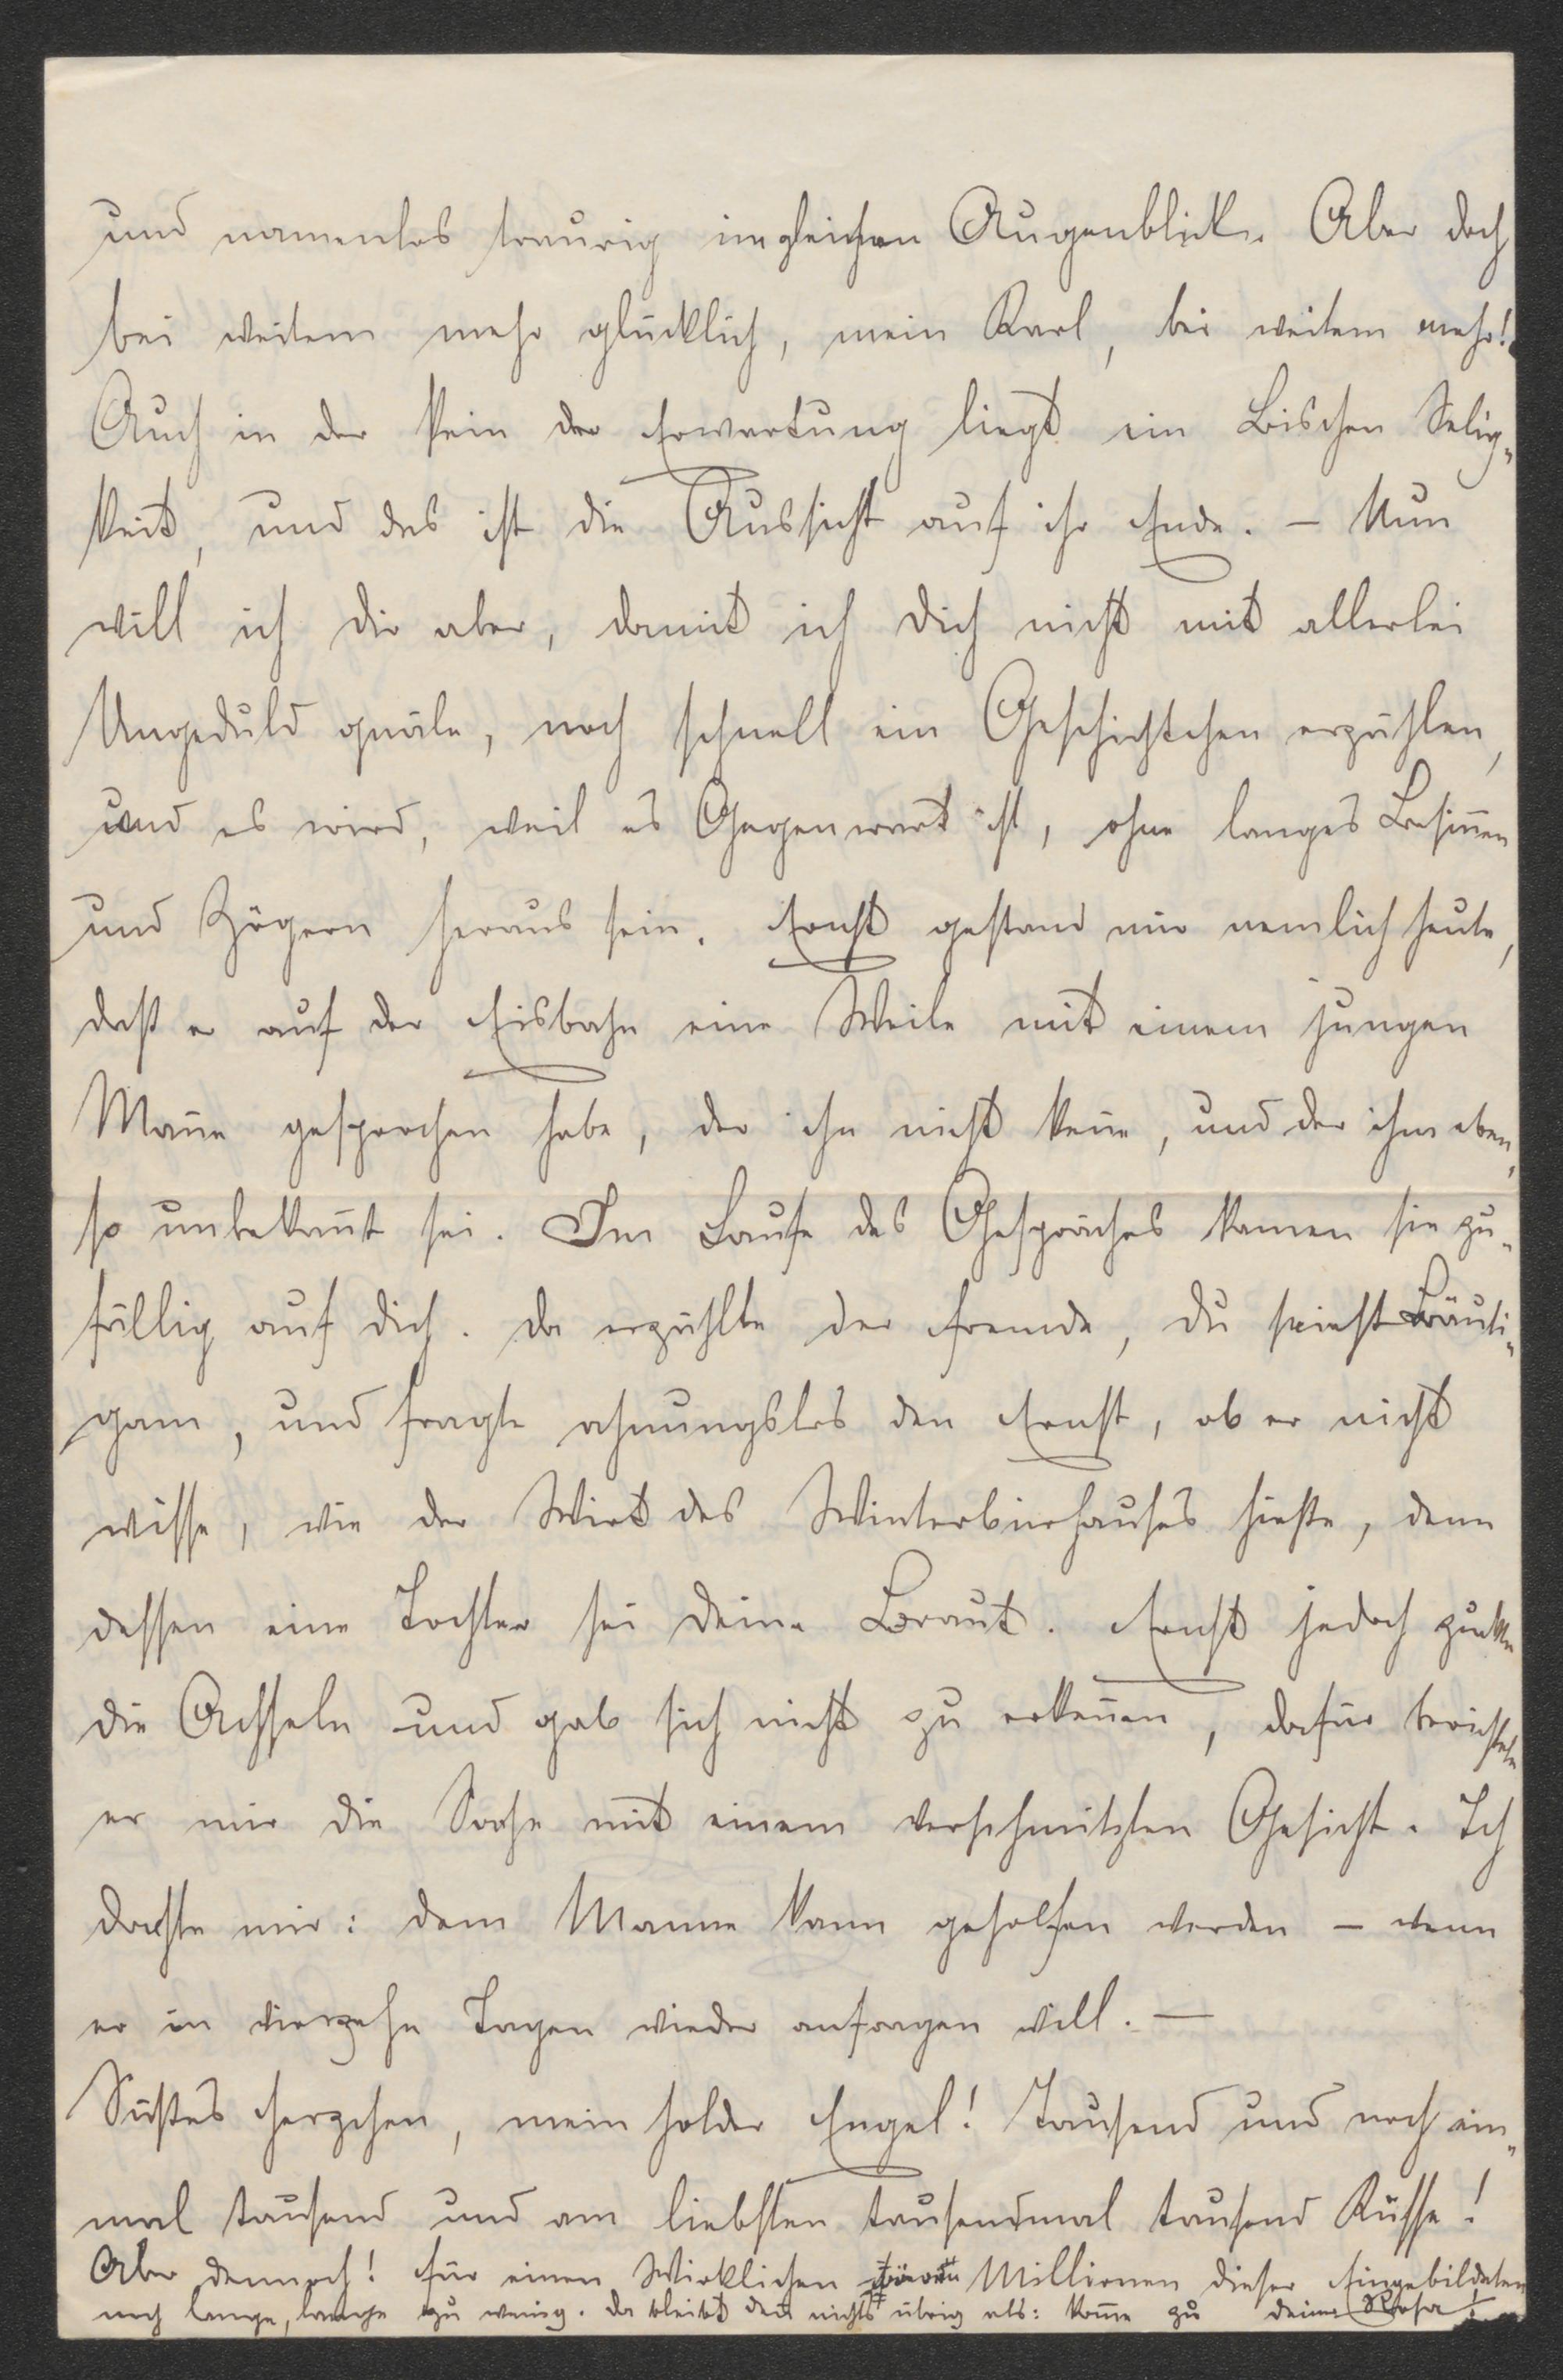 und namenlos traurig im gleichen Augenblick. Aber doch
bei weitem mehr glücklich, mein Karl, bei weitem mehr!
Auch in der Pein der Erwartung liegt ein Bischen Selig-
keit, und das ist die Aussicht auf ihr Ende. – Nun
will ich dir aber, damit ich dich nicht mit allerlei
Ungeduld quäle, noch schnell ein Geschichtchen erzählen,
und es wird, weil es Gegenwart ist, ohne langes Besin̅en
und Zögern heraus sein. Ernst gestand mir nemlich heute,
daß er auf der Eisbahn eine Weile mit einem jungen
Man̅e gesprochen habe, der ihn nicht ken̅e, und der ihm eben-
so unbekan̅t sei. Im Laufe des Gespräches kamen sie zu-
fällig auf dich. Da erzählte der Fremde, du seiest Bräuti-
gam, und fragte ahnungslos den Ernst, ob er nicht
wisse, wie der Wirt des Winterbierhauses hieße, denn
dessen eine Tochter sei deine Braut. Ernst jedoch zuckte
die Achseln und gab sich nicht zu erken̅en, dafür berichtete
er mir die Sache mit einem verschmitzten Gesicht. Ich
dachte mir: dem Manne kann geholfen werden – wenn
er in vierzehn Tagen wieder anfragen will. –
Süßes Herzchen, mein holder Engel! Tausend und noch ein-
mal tausend und am liebsten tausendmal tausend Küsse!
Aber dennoch! Für einen Wirklichen Millionen dieser Eingebildeten
noch lange, lange zu wenig. Da bleibt den̅ nichts übrig als: kom̅e zu deiner Rosa!